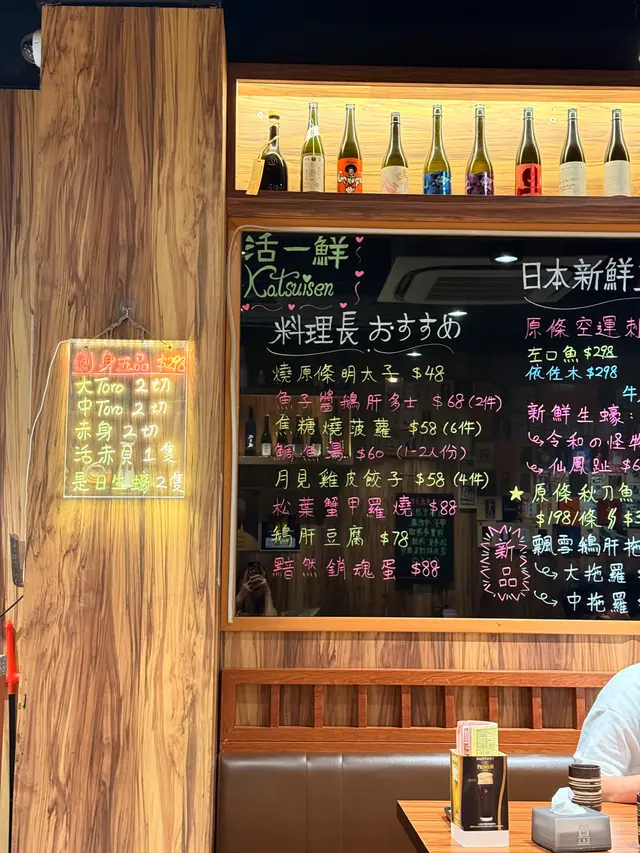 刺身五品 $298
大Toro 2切
中Toro 2切
赤身 2切
活赤貝 1隻
是日生蠔2隻
活一鮮
Katsuisen
料理長 おすすめ
燒原條明太子 $48
魚子醬鵝肝多士 $68(2件)
焦糖燒菠蘿 $58(6件)
鯛魚湯 $60 (1-2人份)
月見雞皮餃子 $58(4件)
松葉蟹甲羅燒 $88
鵝肝豆腐 $78
黯然銷魂蛋 $88
日本新鮮
原條空運刺
左口魚 $298
依佐木 $298
新鮮生蠔:
令和の怪
仙風趾 $6
★原條秋刀魚
$198/條
新品
飄雪鵝肝拖
大拖羅
中拖羅
PREMIUM